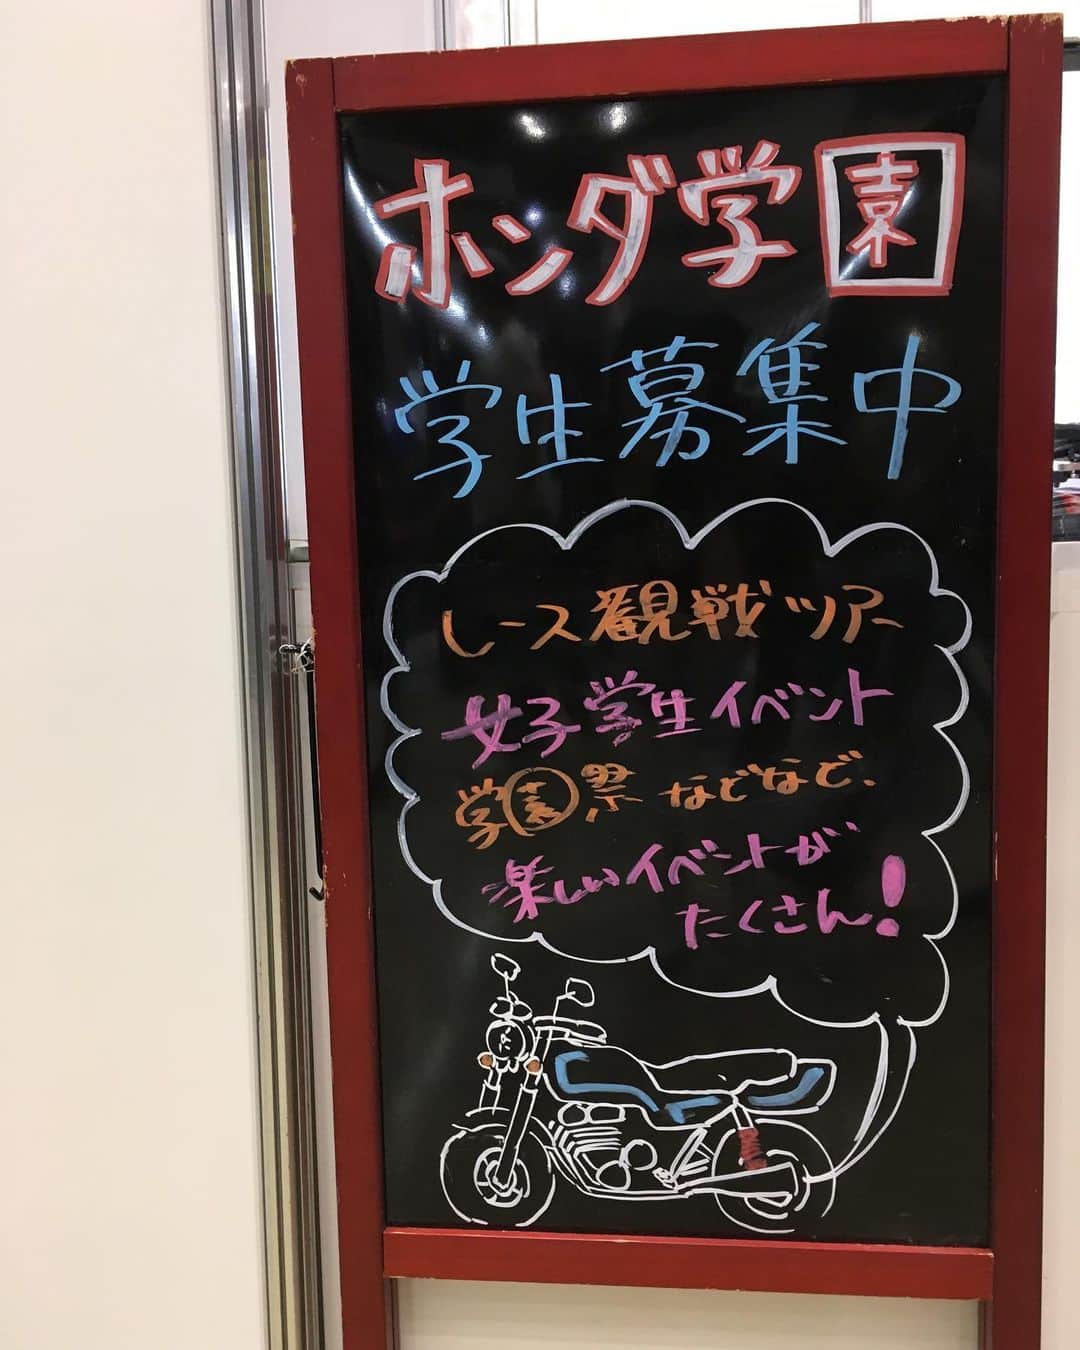 ホンダ学園
学生募集中
レース観戦ツアー
女子学生イベント
学園祭 などなど、
楽しいイベントが
たくさん!